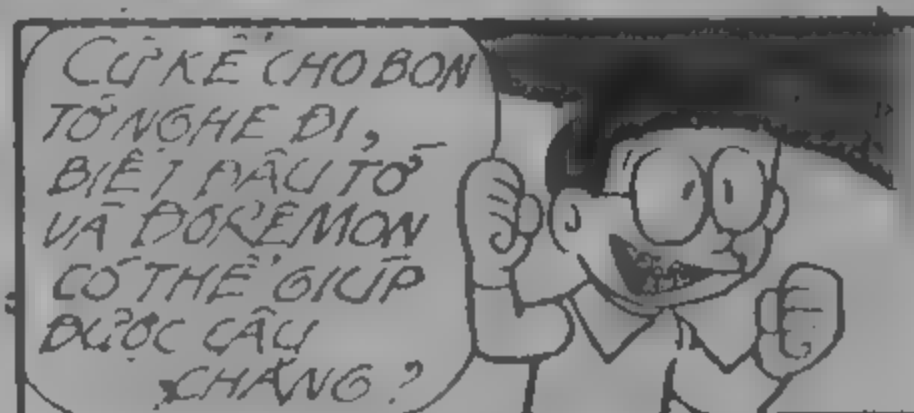 CỨ KỂ CHO BỌN
TỚ NGHE ĐI,
BIẾT ĐÂU TỚ
VÀ ĐÔRÊMON
CÓ THỂ GIÚP
ĐƯỢC CẬU
CHĂNG?